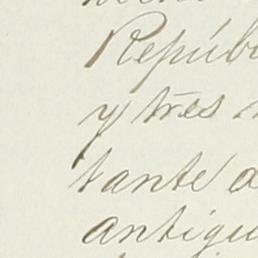 Repúb
y tres
tante
antigu